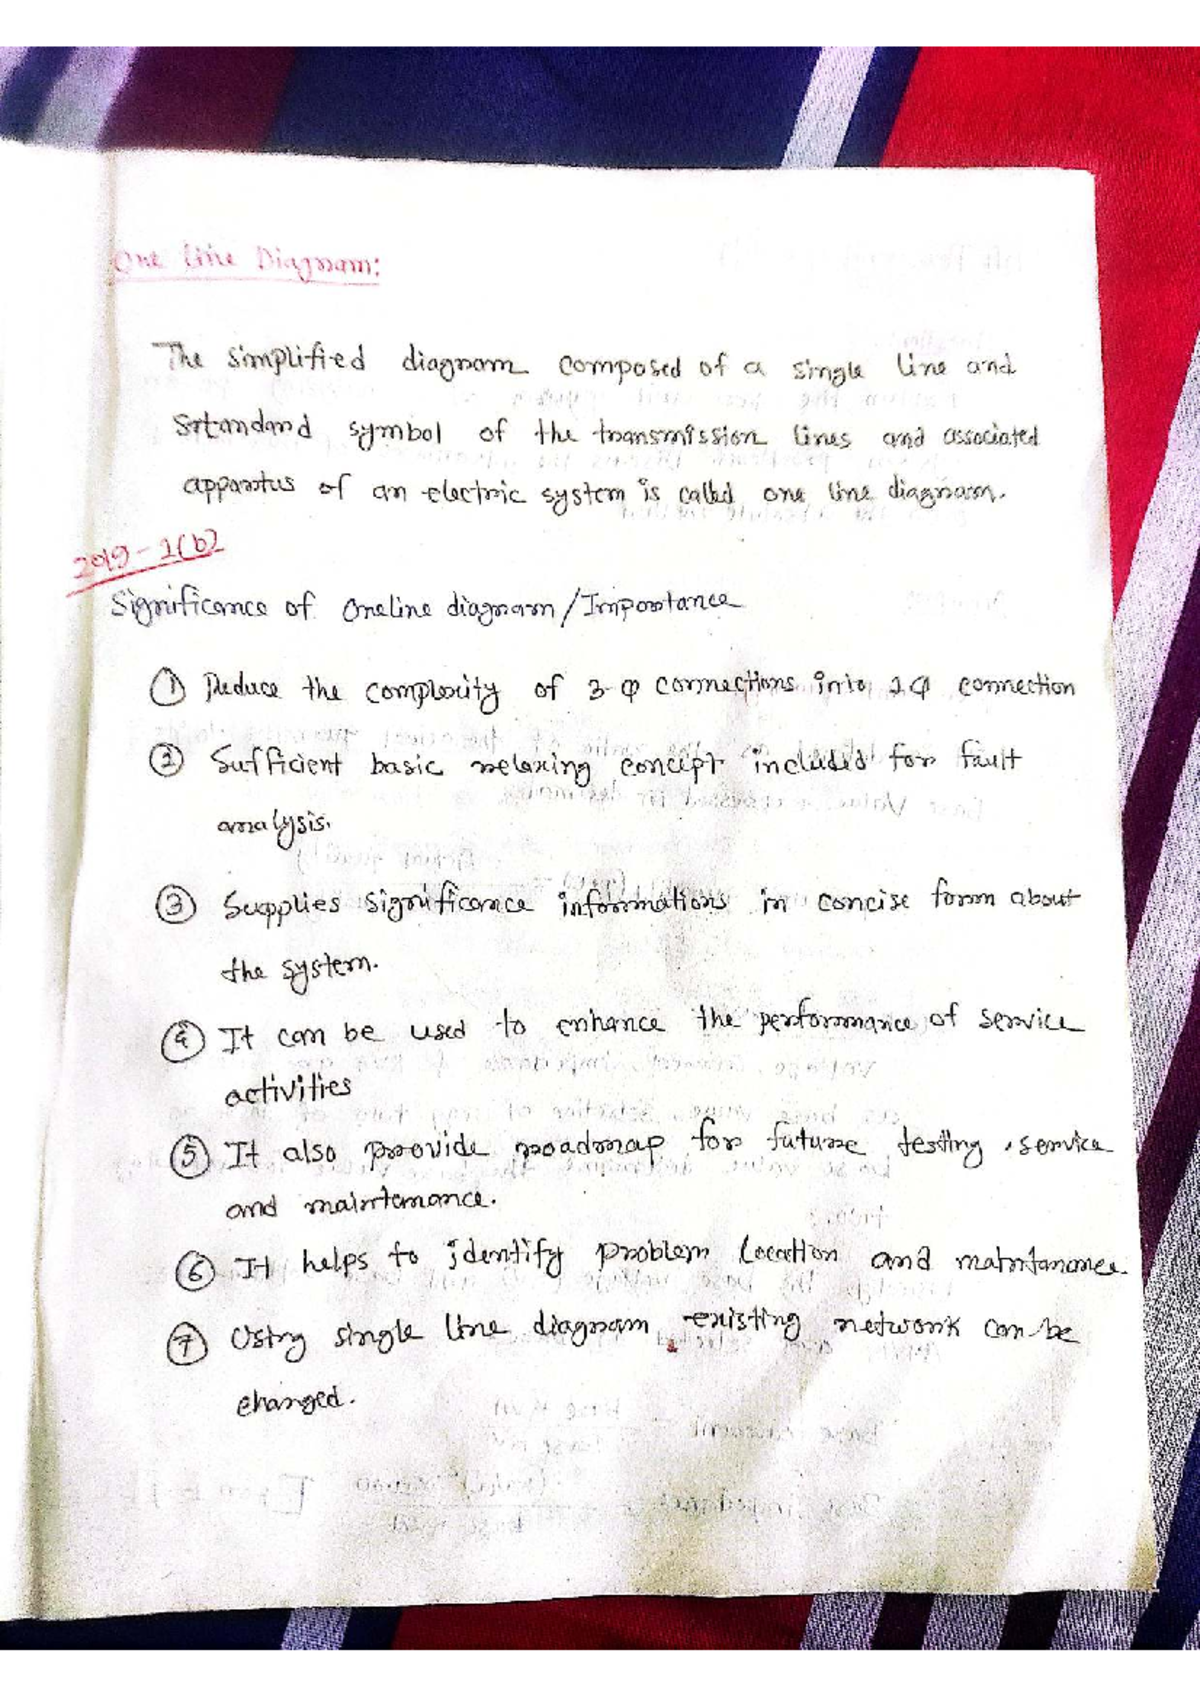 One line Diagram:
The simplified diagram composed of a single line and
Satandard symbol of the transmission lines and associated
apparatus of an electric system is called one line diagram.
2019 - 1(b)
Significance of oneline diagram/Importance
① Reduce the complexity of 3-φ connections into 1φ connection
② Sufficient basic relaxing concept included for fault
analysis.
③ Supplies significance informations in concise form about
the system.
④ It can be used to enhance the performance of service
activities
⑤ It also provide roadmap for future testing, service
and maintenance.
⑥ It helps to identify problem location and maintanance.
⑦ Using single line diagram existing network can be
changed.